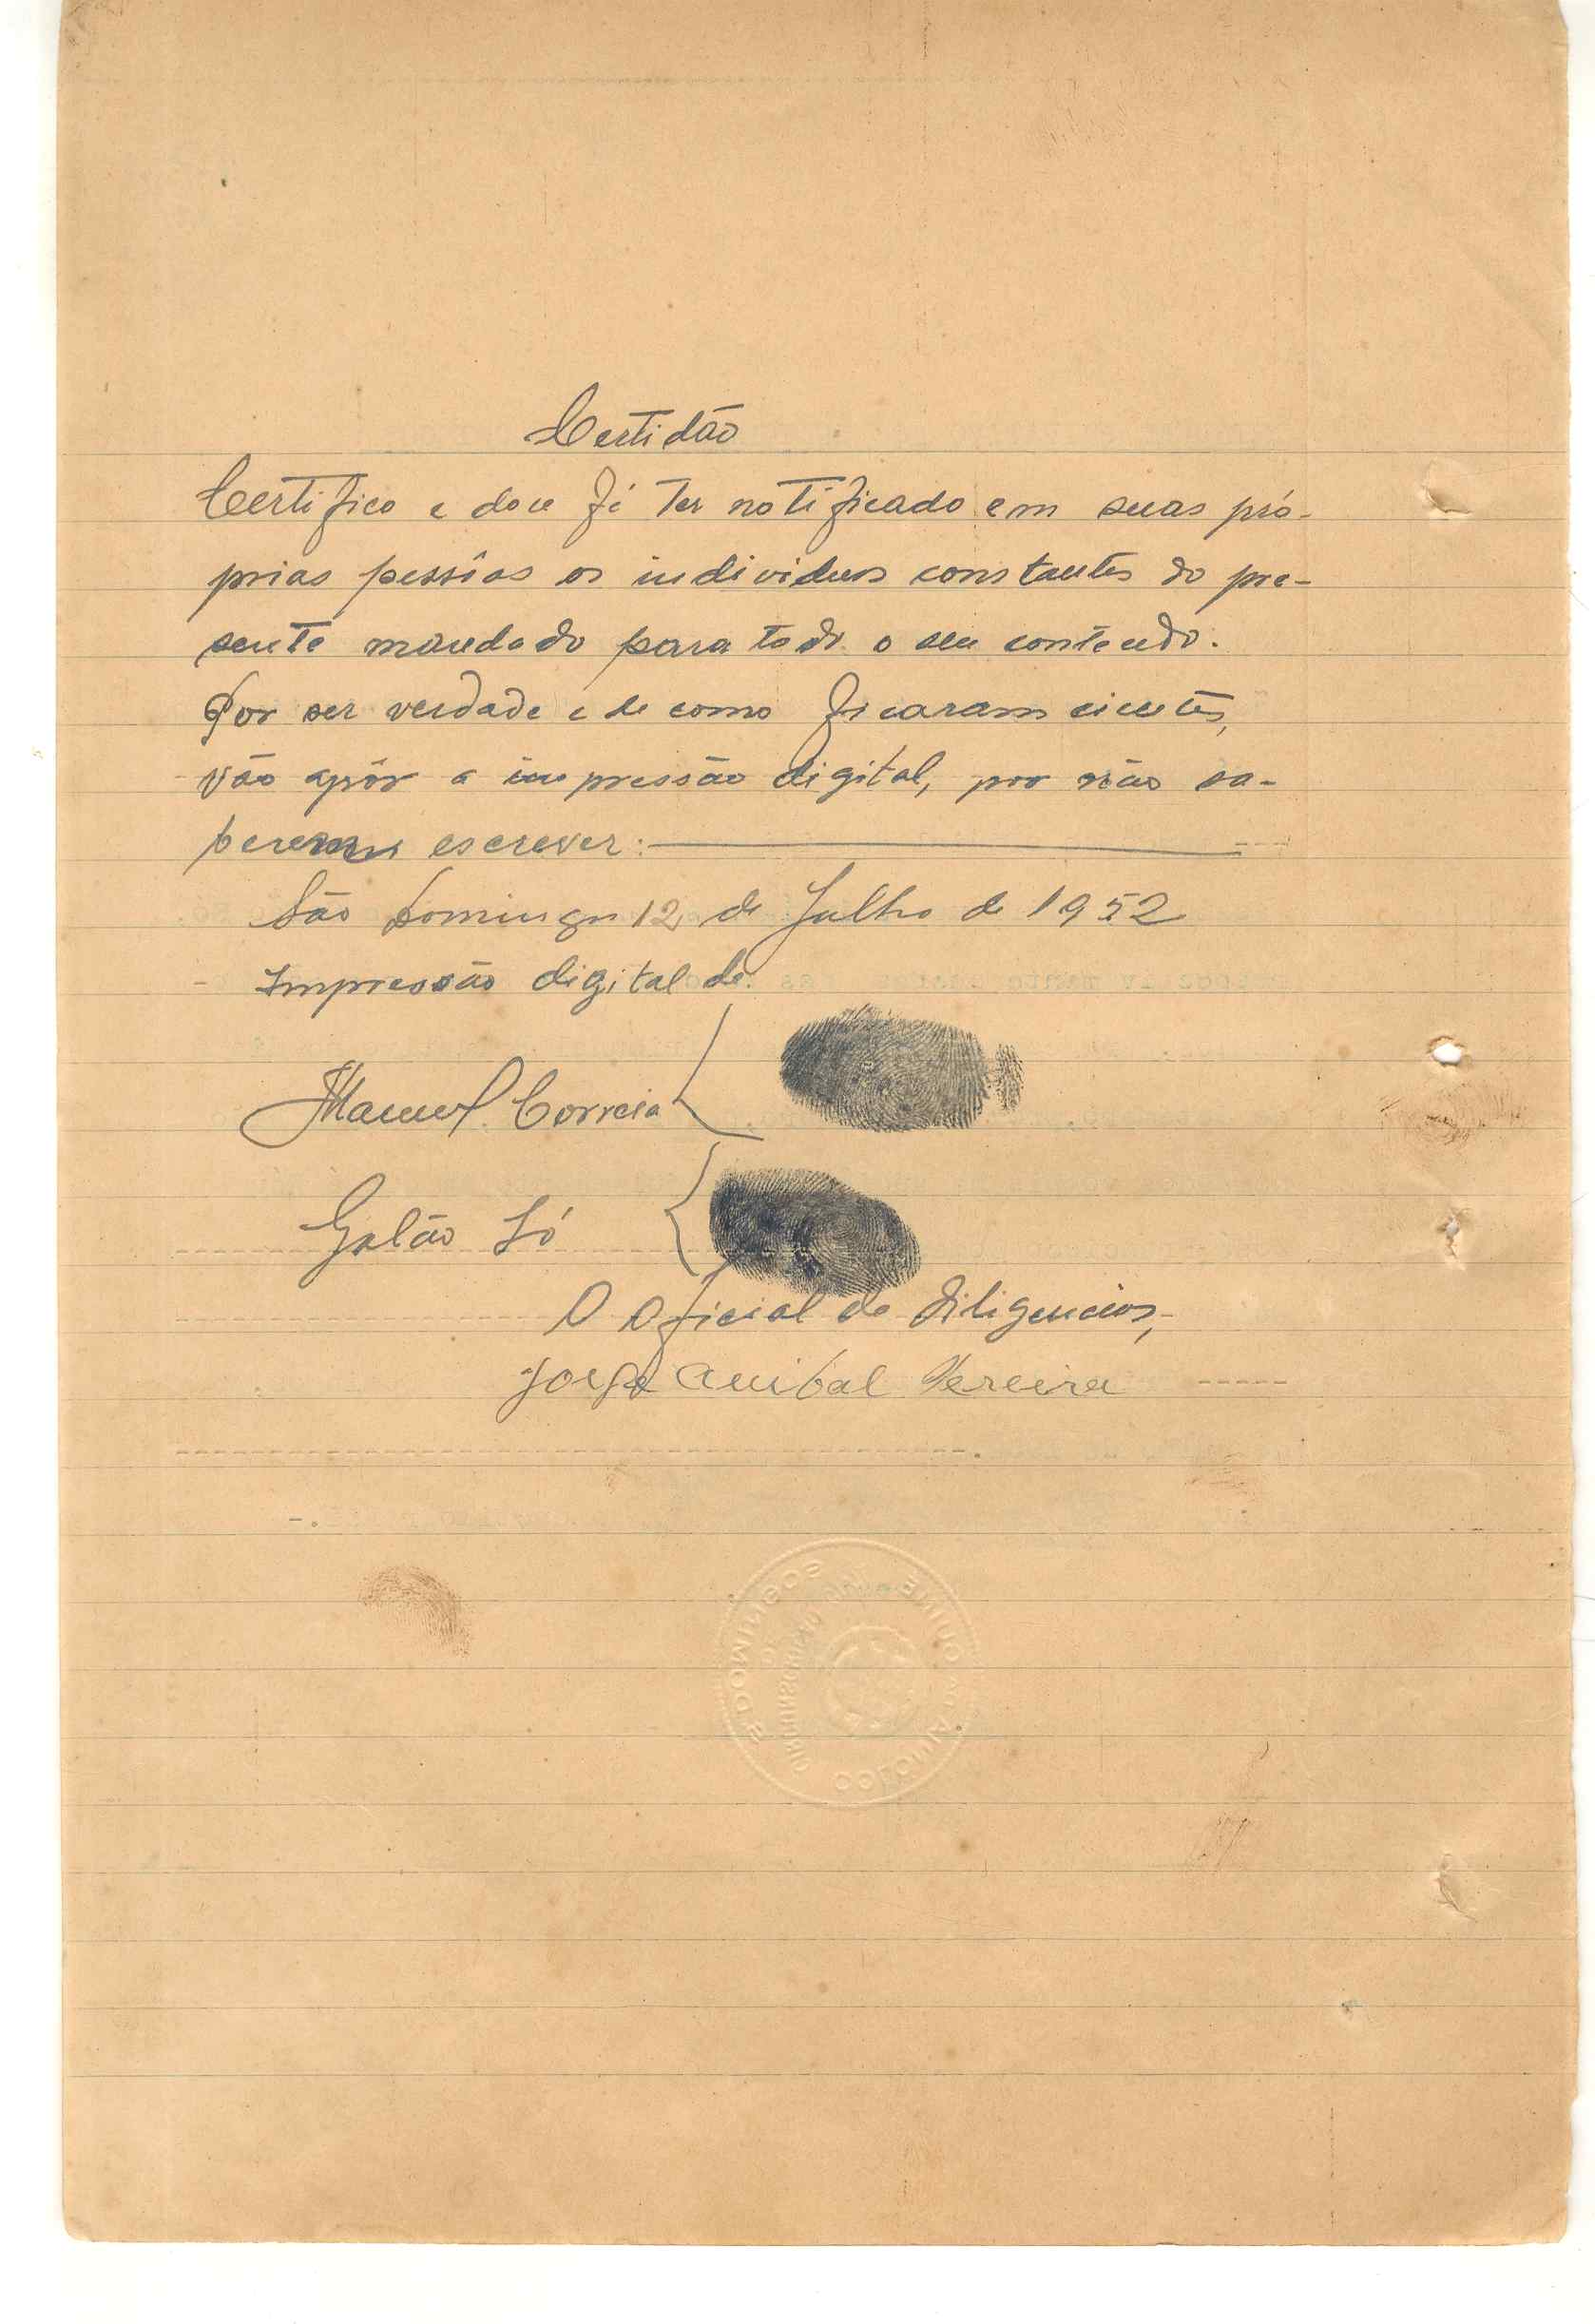 Certidão
Certifico e dou fé ter notificado em suas pró-
prias pessôas os individuos constantes do pre-
sente mandado para todo o seu conteudo.
Por ser verdade e de como ficaram cientes,
vão apôr a impressão digital, por não sa-
berem escrever:
São Domingos 12 de Julho de 1952
Impressão digital de
Manuel Correia
Galão Só
O Oficial de diligencias,
Jorge Anibal Pereira